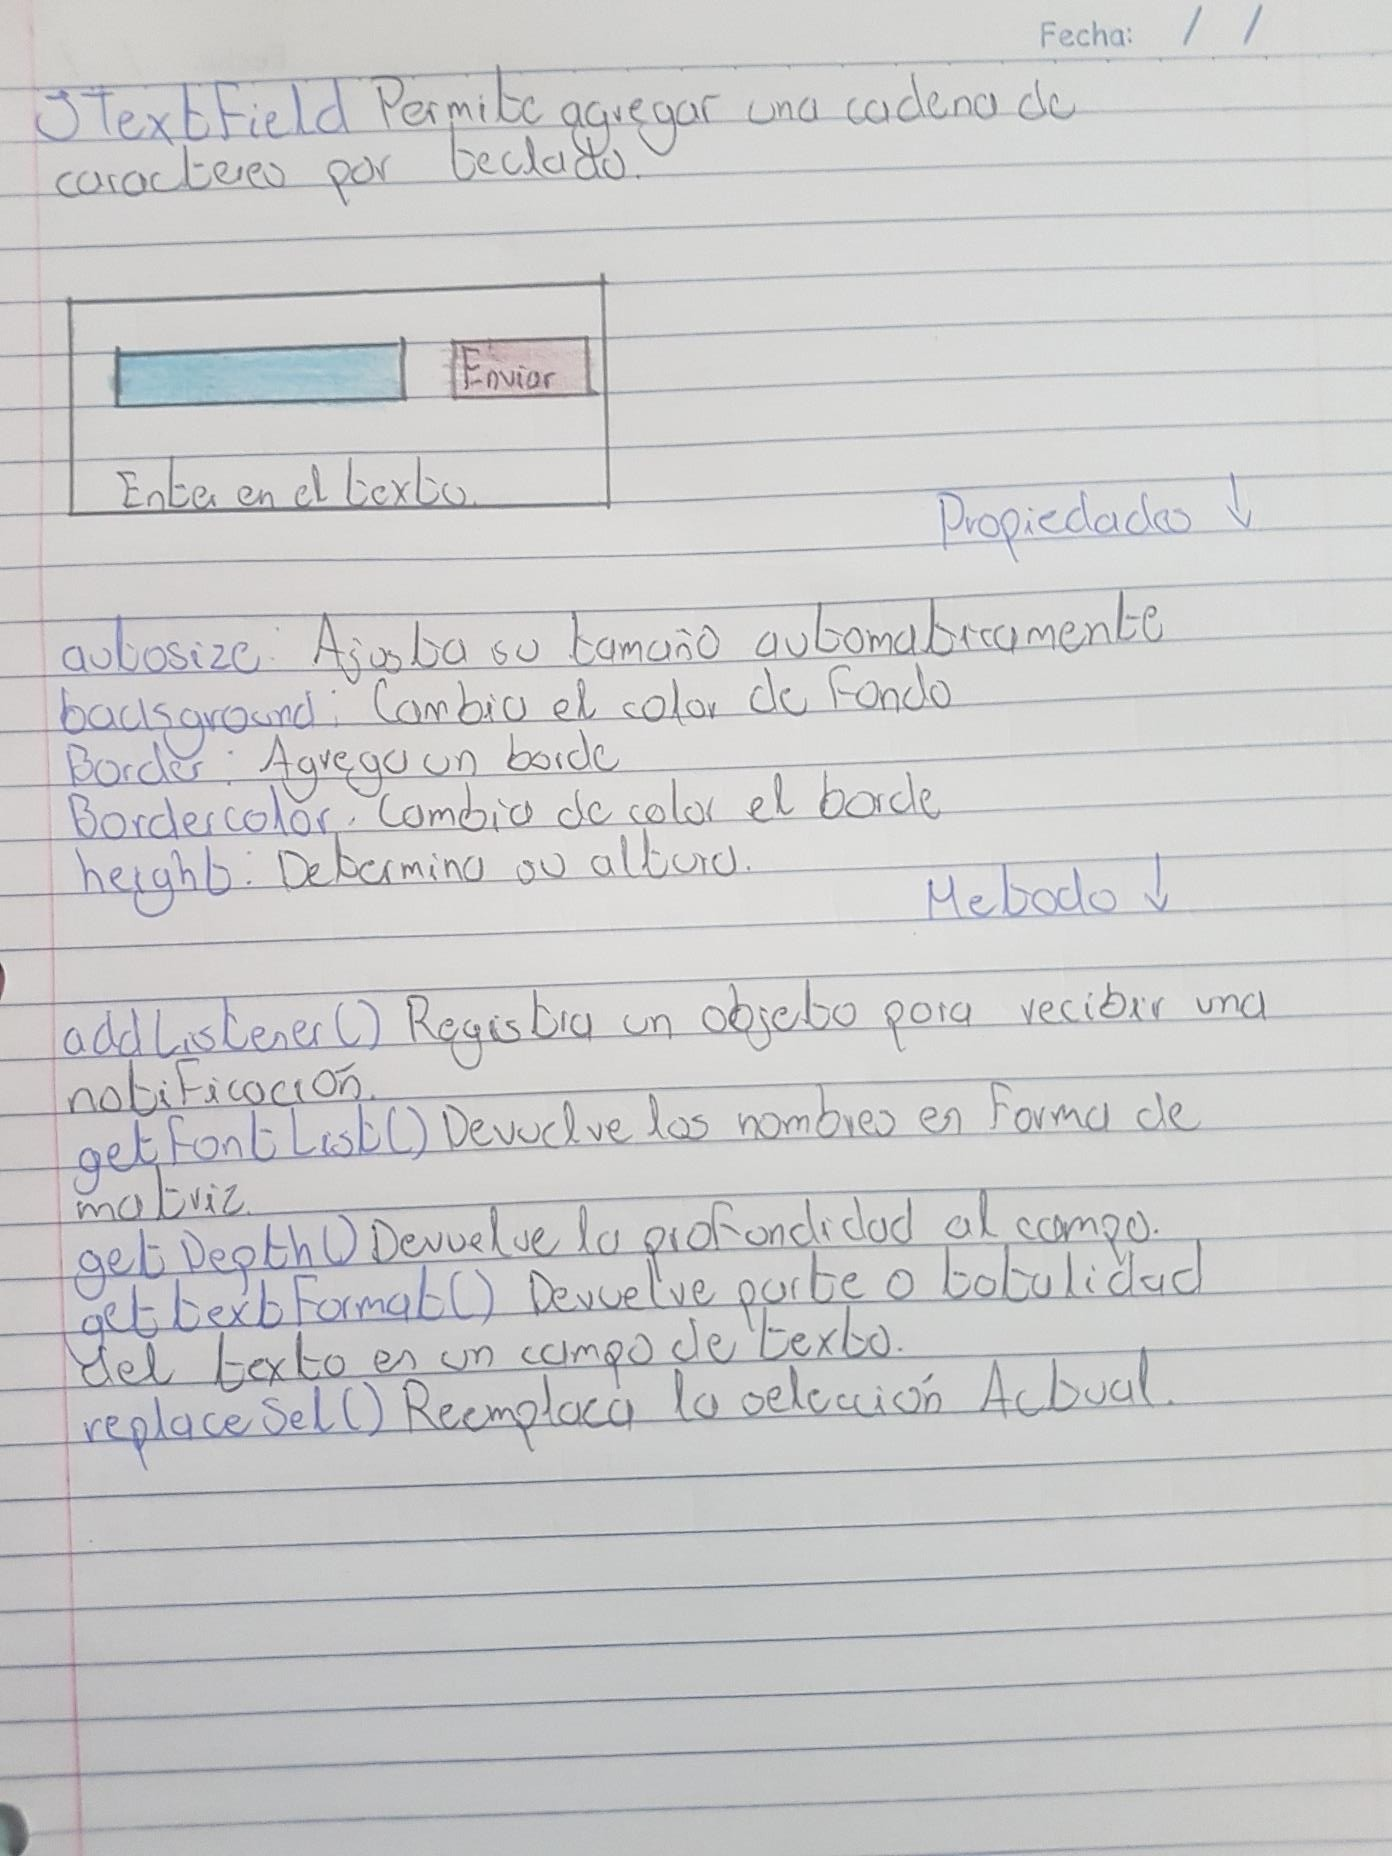 Fecha: / /
JTextField Permite agregar una cadena de
caracteres por teclado.
Enviar
Enter en el texto.
Propiedades ↓
autosize: Ajusta su tamaño automaticamente
background: Cambia el color de Fondo
Border: Agrega un borde
Bordercolor. Cambia de color el borde
height: Determina su altura.
Metodo ↓
addListener() Registra un objeto para recibir una
notificación.
getfontList() Devuelve los nombres en Forma de
matriz.
getDepth() Devuelve la profundidad al campo.
gettextFormat() Devuelve parte o totalidad
del texto en un campo de texto.
replaceSel() Reemplaca la selección Actual.